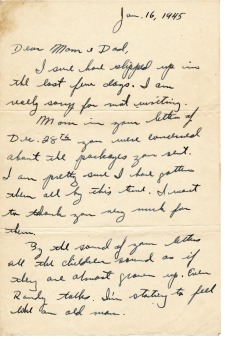 Jan. 16, 1945
Dear Mom & Dad,
I sure have slipped up in
the last few days. I am
really sorry for not writing.
Mom in your letter of
Dec. 28th you were concerned
about the packages you sent.
I am pretty sure I have gotten
them all by this time. I want
to thank you very much for
them.
By the sound of your letters
all the children sound as if
they are almost grown up. Even
Randy talks. I'm starting to feel
like an old man.